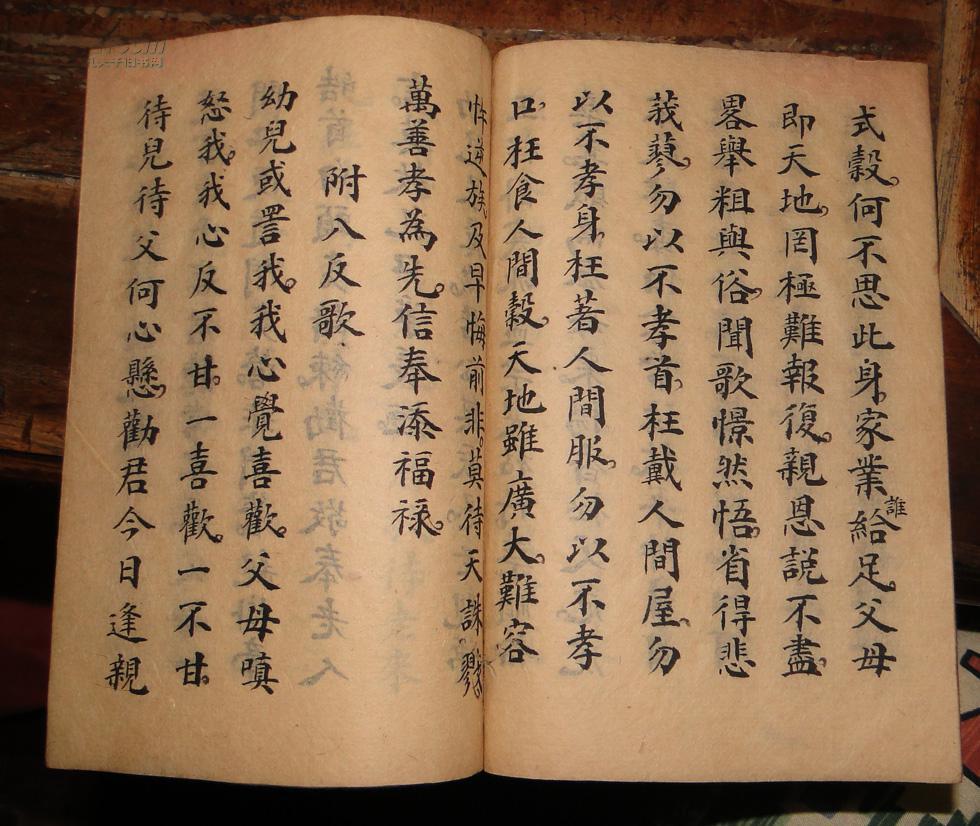 式穀何不思此身家業誰給足父母
即天地罔極難報復親恩説不盡
畧舉粗與俗聞歌憬然悟省得悲
莪蓼勿以不孝首枉戴人間屋勿
以不孝身枉著人間服勿以不孝
口枉食人間穀天地雖廣大難容
忤逆族及早悔前非莫待天誅戮
萬善孝為先信奉添福禄
附八反歌
幼兒或詈我我心覺喜歡父母嗔
怒我我心反不甘一喜歡一不甘
待兒待父何心懸勸君今日逢親